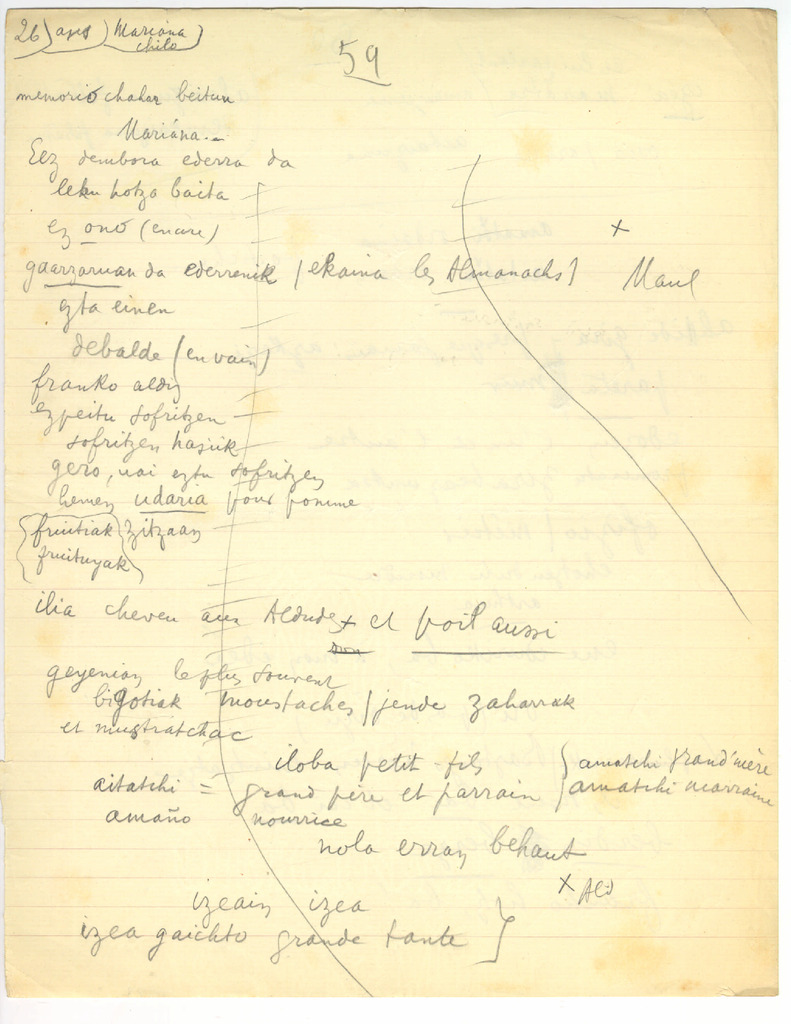 26) ans) Mariana
chilo
59
memorio chahar beitun
Mariána...
Eez dembora ederra da
leku hotza baita
ez onó (encore)
gaarzaruan da ederrenik (ekaina les Almanachs)
+
Maul
ezta einen
debalde (en vain)
franko aldiz
ezpeitu sofritzen
sofritzen hasiik
gero, nai eztu sofritzen
hemen udaria pour pomme
fruitiak zitzaan
fruituyak
ilia cheveu aux Aldudes + et poil aussi
geyenian le plus souvent
bigotiak moustaches / jende zaharrak
et mustatchac
iloba petit-fils
aitatchi = grand père et parrain
amatchi grand'mère
amatchi marraine
amaño nourrice
nola erran behaut
+ Ald
izeain izea
izea gaichto grande tante